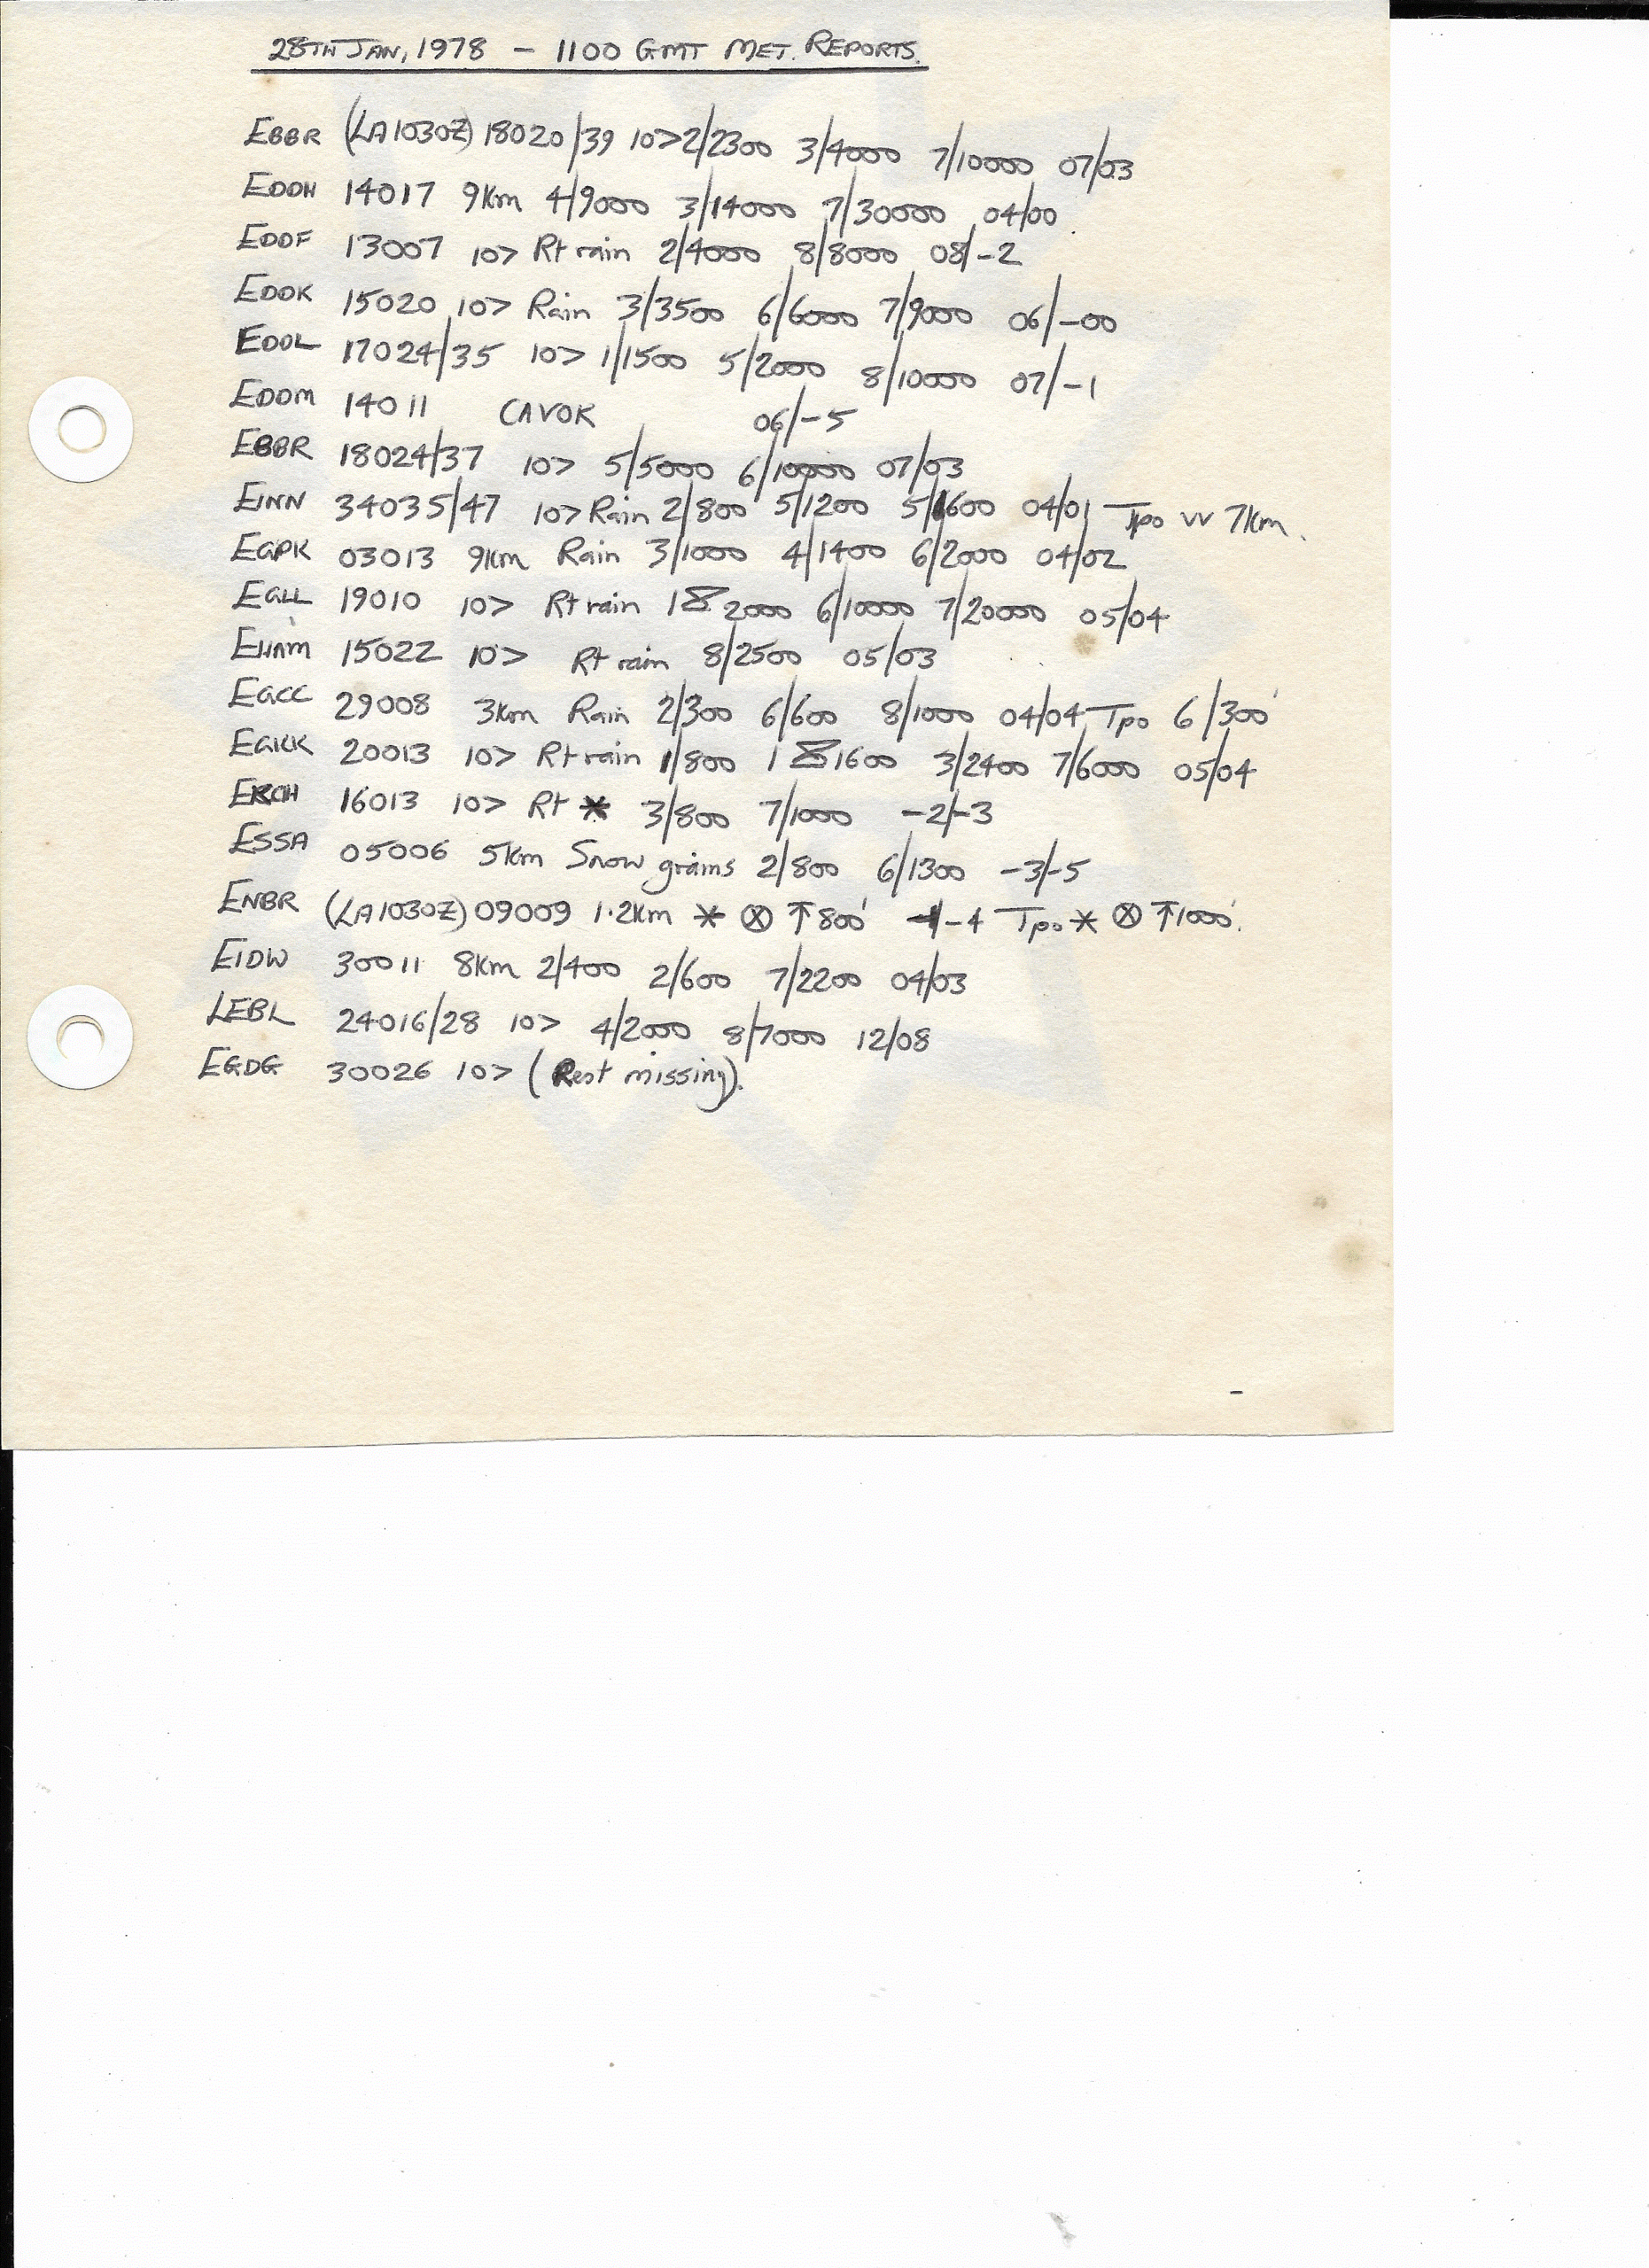 28TH JAN, 1978 - 1100 GMT MET. REPORTS.
EBBR (LA1030Z) 18020/39 10> 2/2300 3/4000 7/10000 07/03
EDDH 14017 9Km 4/9000 3/14000 7/30000 04/00
EDDF 13007 10> Rt rain 2/4000 8/8000 08/-2
EDDK 15020 10> Rain 3/3500 6/6000 7/9000 06/-00
EDDL 17024/35 10> 1/1500 5/2000 8/10000 07/-1
EDDM 14011 CAVOK 06/-5
EBBR 18024/37 10> 5/5000 6/10000 07/03
EINN 34035/47 10> Rain 2/800 5/1200 5/1600 04/01 Tpo vv 7Km.
EGPK 03013 9Km Rain 3/1000 4/1400 6/2000 04/02
EGLL 19010 10> Rt rain 1 2000 6/10000 7/20000 05/04
EHAM 15022 10> Rt rain 8/2500 05/03
EGCC 29008 3Km Rain 2/300 6/600 8/1000 04/04 Tpo 6/300'
EGKK 20013 10> Rt rain 1/800 1 1600 3/2400 7/6000 05/04
16013 10> Rt * 3/800 7/1000 -2/-3
ESSA 05006 5Km Snow grains 2/800 6/1300 -3/-5
ENBR (LA1030Z) 09009 1.2Km * ⊗ ↑800' -4 Tpo * ⊗ ↑1000'.
EIDW 30011 8Km 2/400 2/600 7/2200 04/03
LEBL 24016/28 10> 4/2000 8/7000 12/08
EGDG 30026 10> (Rest missing).